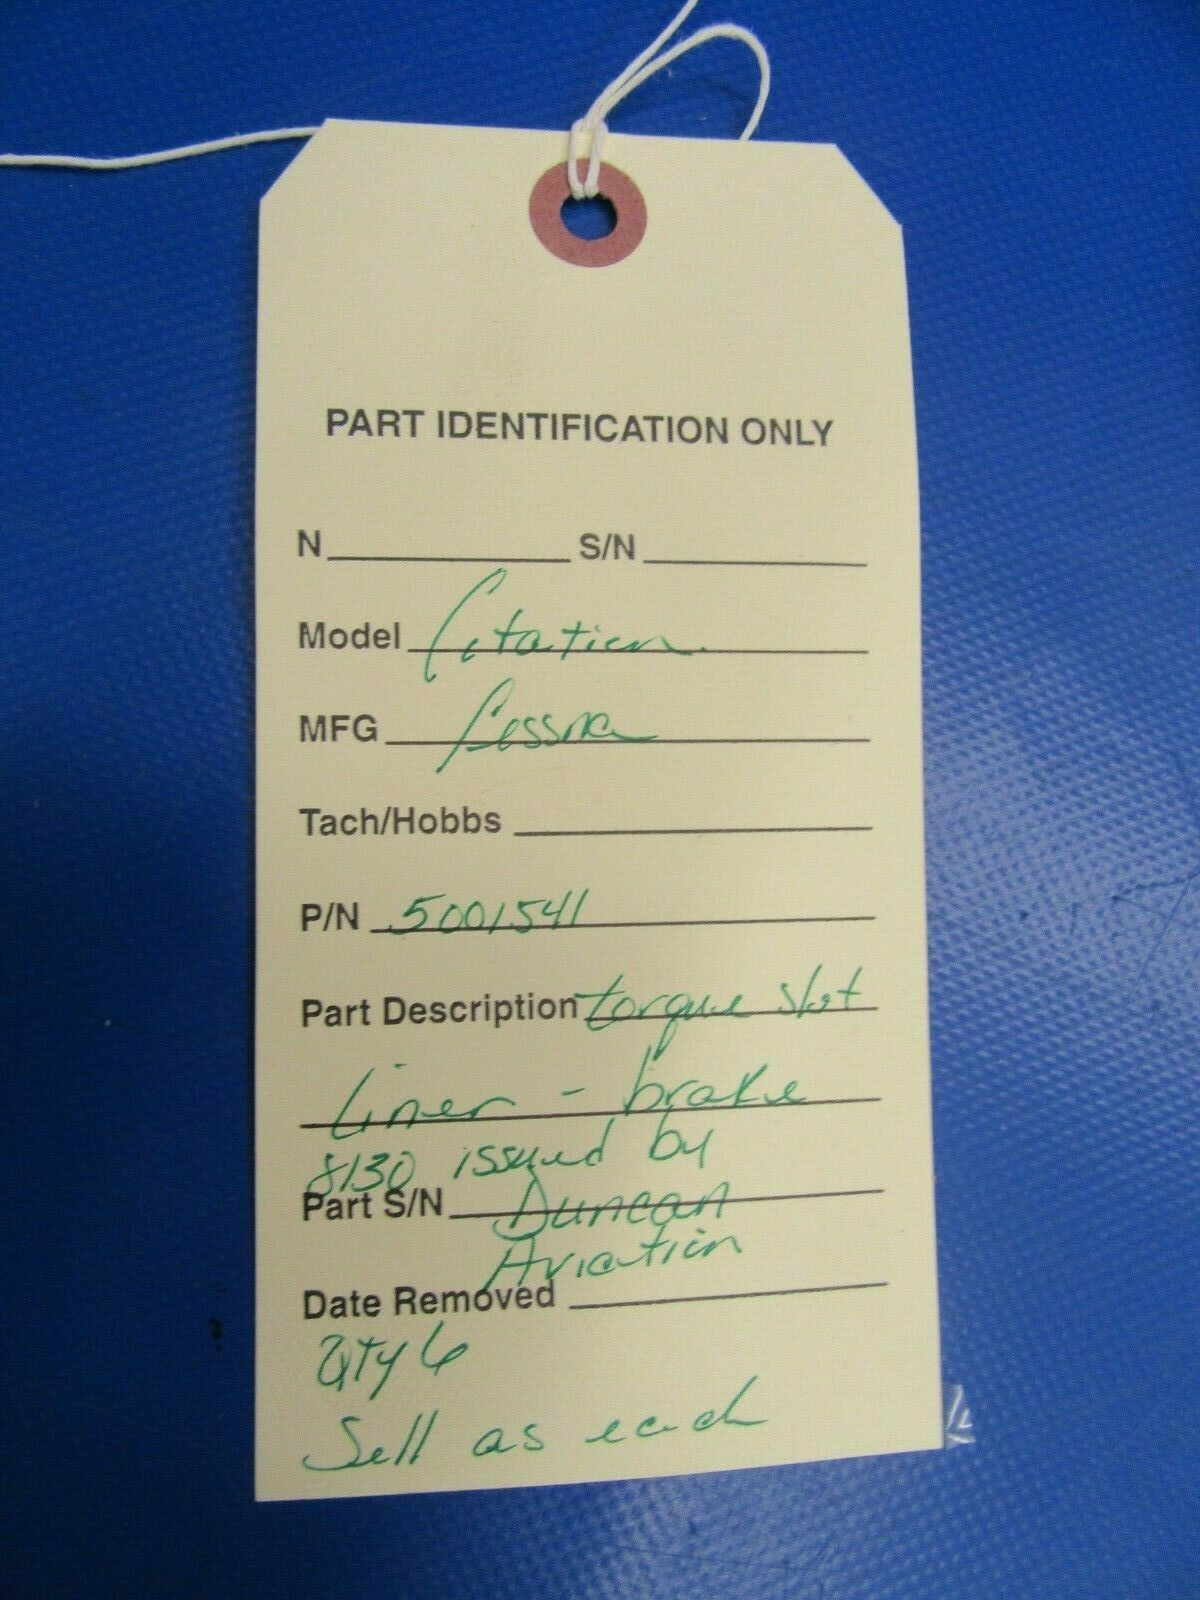 PART IDENTIFICATION ONLY
N S/N
Model Citation
MFG Cessna
Tach/Hobbs
P/N 5001541
Part Description torque slot
liner - brake
8130 issued by
Part S/N Duncan
Aviation
Date Removed
Qty 6
Sell as each